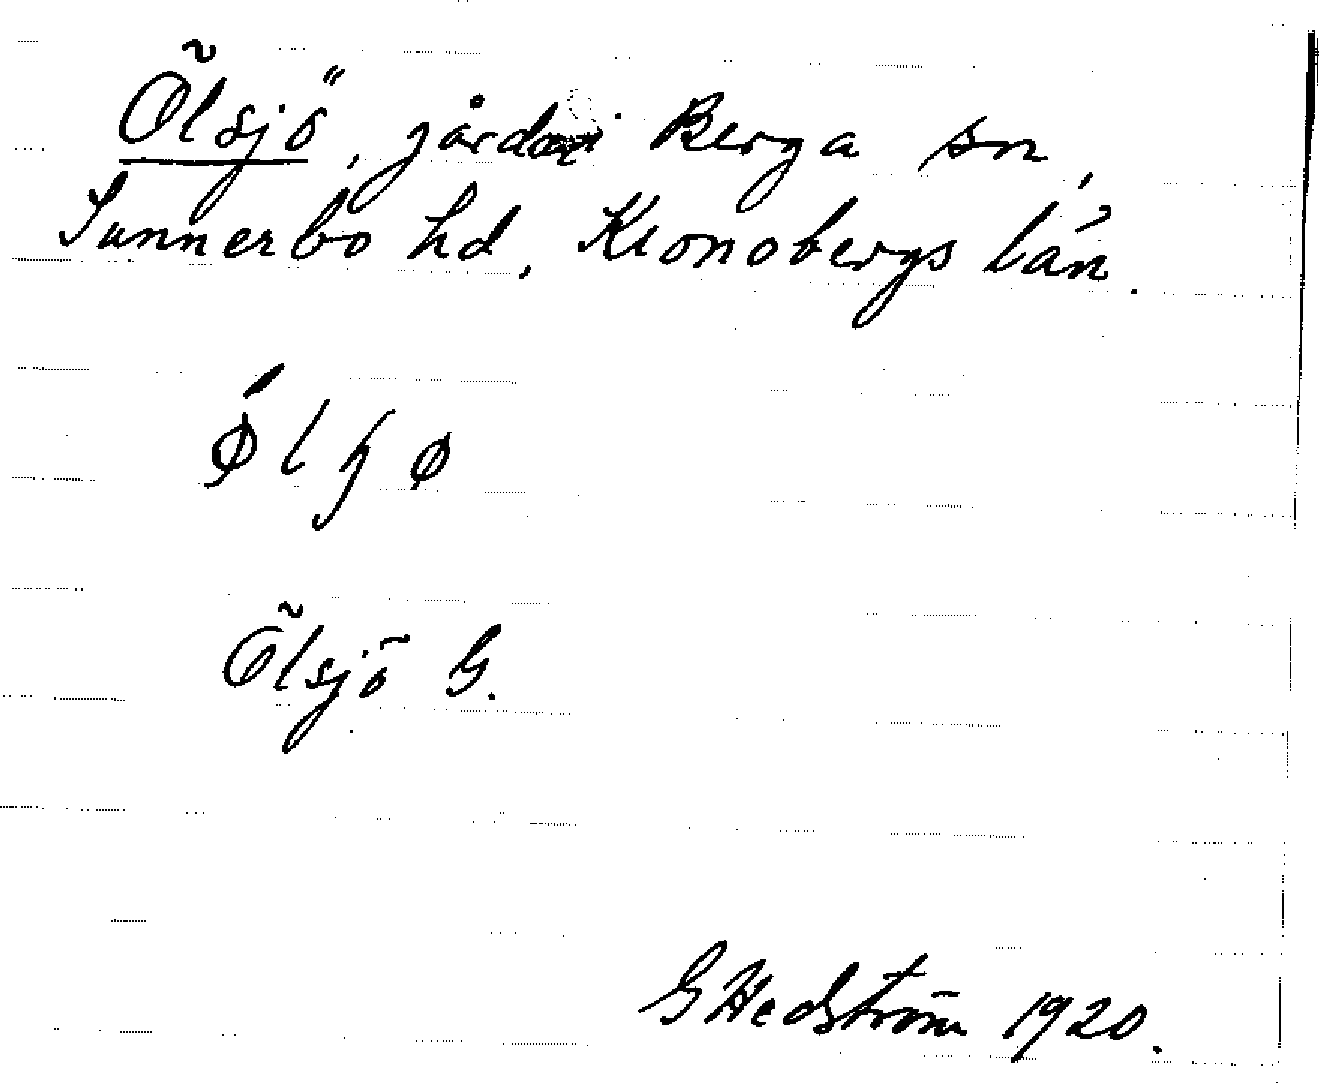 Ölsjö, gård i Berga sn,
Sunnerbo hd, Kronobergs län.
Ölsjö G.
G Hedström 1920.